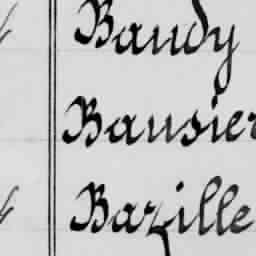 Baudy
Bausier
Bazille